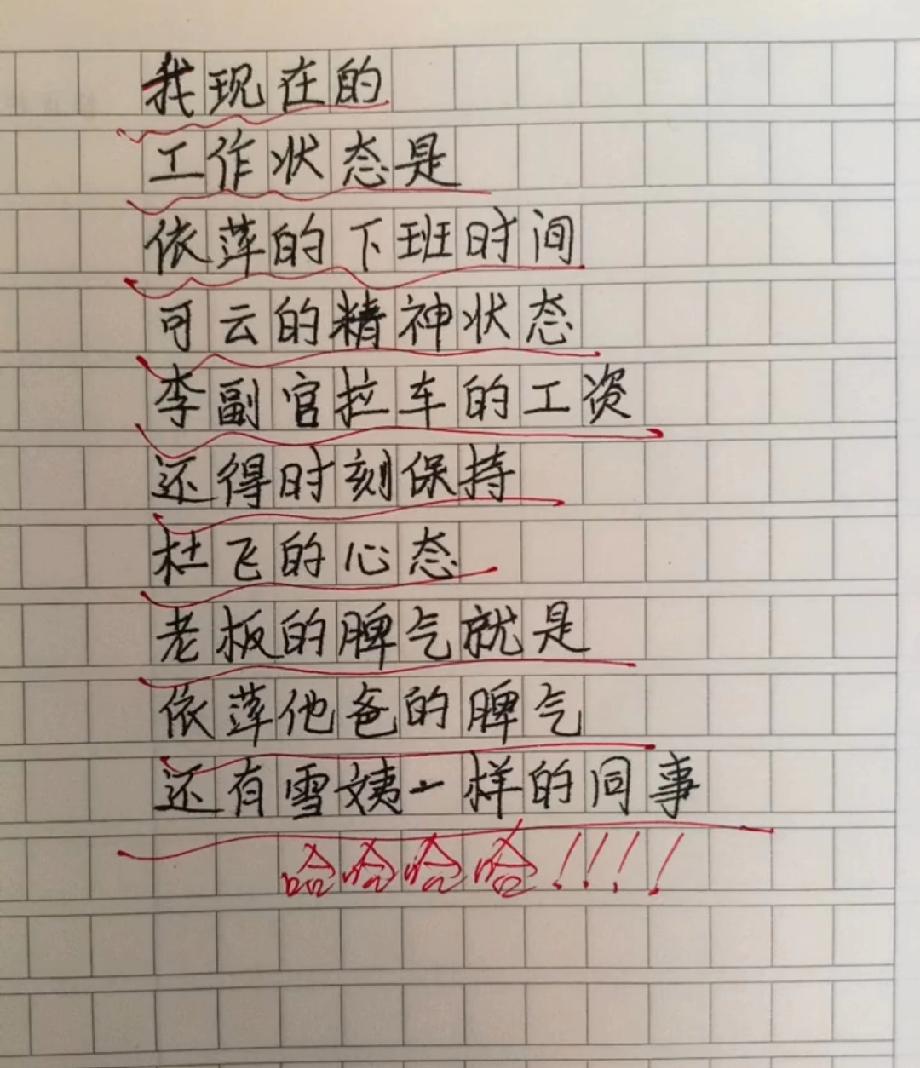 我现在的
工作状态是
依萍的下班时间
可云的精神状态
李副官拉车的工资
还得时刻保持
杜飞的心态
老板的脾气就是
依萍他爸的脾气
还有雪姨一样的同事
哈哈哈哈!!!!